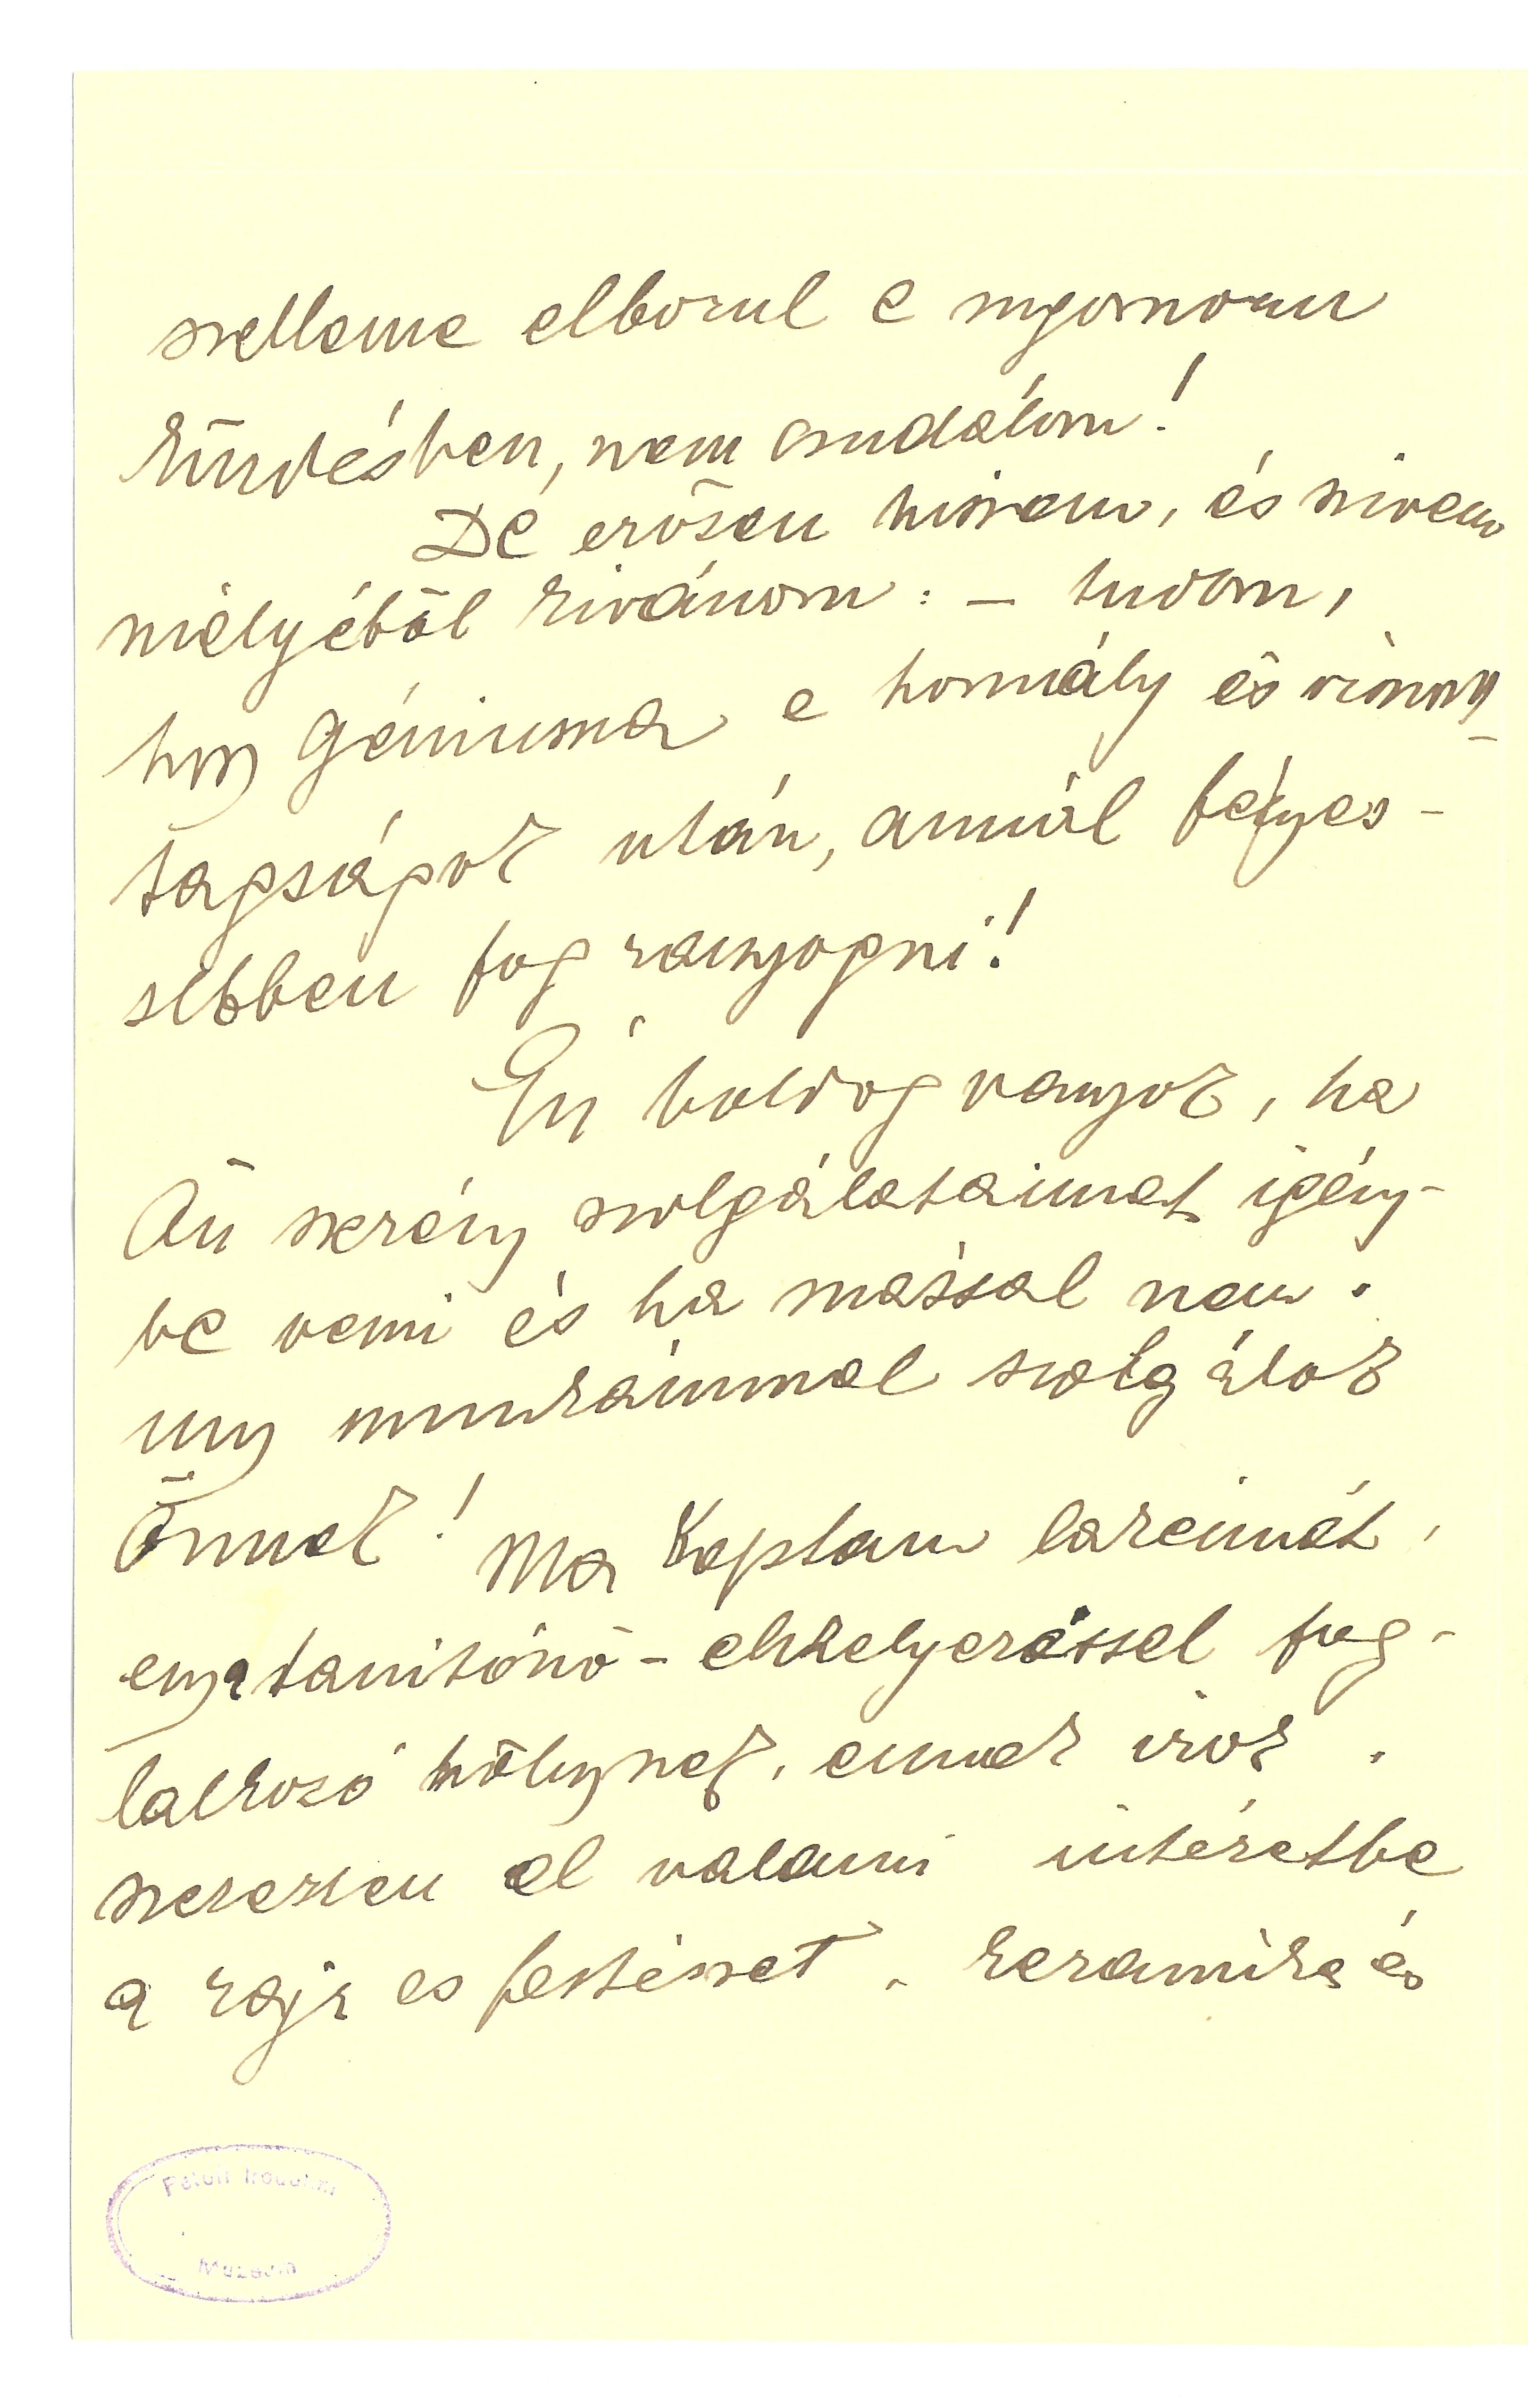 szelleme elborul e nyomoru
küzdésben, nem csudálom!
De erősen hiszem, és szivem
mélyéből kivánom: – tudom,
hogy géniusza e homály és viszony
tagságok után, annál fényes-
sebben fog ragyogni!
Én boldog vagyok, ha
Ön szerény szolgálataimat igény-
be veszi és ha mással nem,
ugy munkáimmal szolgálok
Önnek! Ma kaptam lakcimét,
egy a tanitónő-elhelyezéssel fog-
lalkozó hölgynek, ennek irok.
szerezzen el valami intézetbe
a rajz es festészet, keramika és
Petőfi Irodalmi
Múzeum